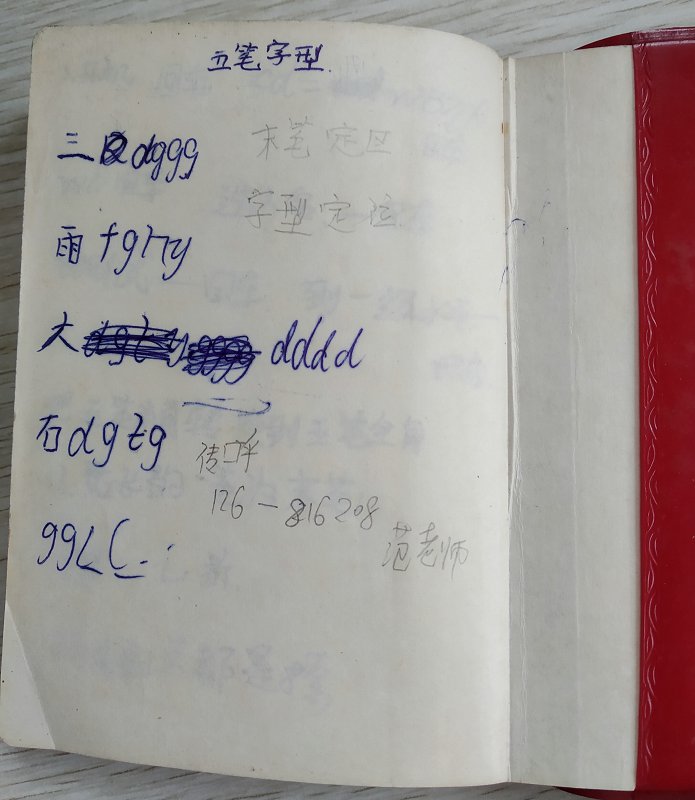 五笔字型
三 dggg 末笔定区
字型定位
雨 fghy
大 dddd
石 dgtg
传呼
126-816208
范老师
ggll